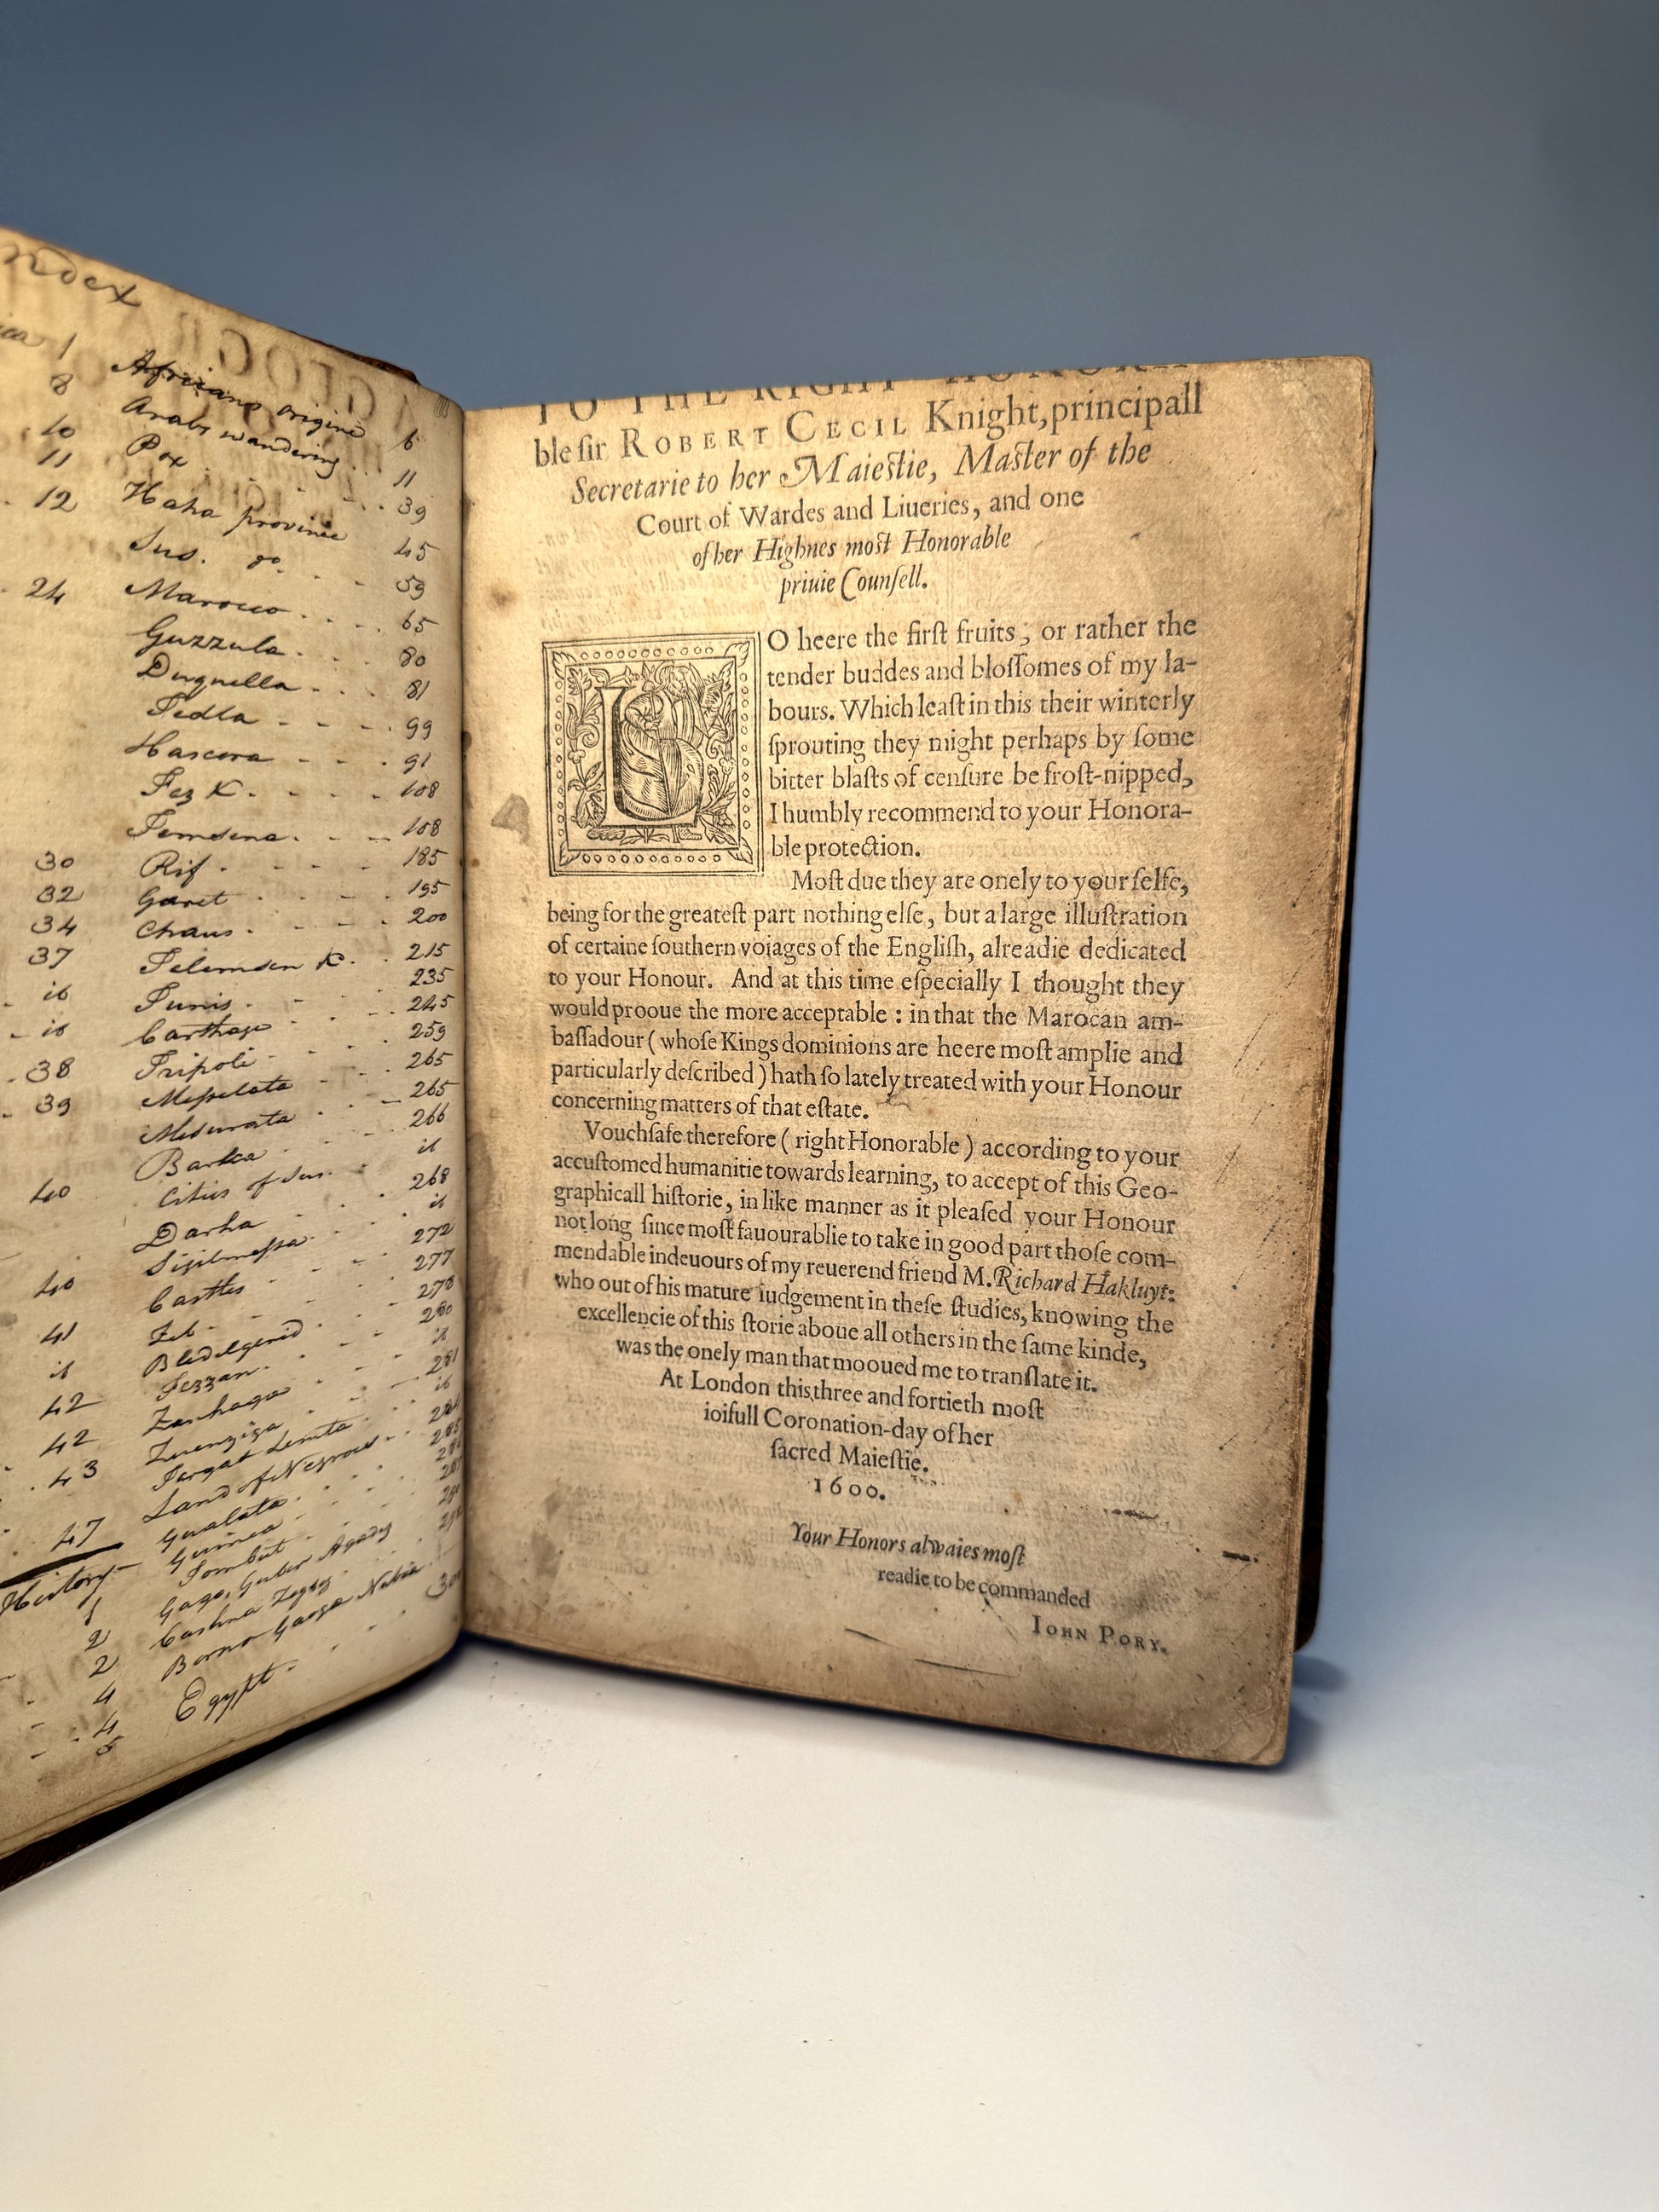 Index
1
8
10
11
12
24
30
32
34
37
ib
ib
38
39
40
40
41
ib
42
42
43
47
History
1
2
2
4
4
5
Africans origine 6
Arabs wandering 11
Pox 39
Haha province 45
Sus. do. 59
Marocco 65
Guzzula 80
Duquella 81
Tedla 99
Hascora 91
Fez K. 108
Temsena 108
Rif 185
Garet 195
Chaus 200
Telemsen K. 215
Tunis 235
Carthage 245
Tripoli 259
Messelata 265
Mesurata 265
Barka 266
Cities of Sus. ib
Darha 268
Sigilmessa ib
Castles 272
Zeb 277
Bledulgerid 278
Fezzan 280
Zanhaga ib
Zuenziga 281
Targat Lemta ib
Land of Negroes
Gualata
Guinea
Tombut
Gago, Guber Agadez
Cashna Zegzeg
Borno Gaoga Nubia
Egypt
TO THE RIGHT HONORA-
ble sir ROBERT CECIL Knight, principall
Secretarie to her Maiestie, Master of the
Court of Wardes and Liueries, and one
of her Highnes most Honorable
priuie Counſell.
LO heere the firſt fruits, or rather the
tender buddes and bloſſomes of my la-
bours. Which leaſt in this their winterly
ſprouting they might perhaps by ſome
bitter blaſts of cenſure be froſt-nipped,
I humbly recommend to your Honora-
ble protection.
Moſt due they are onely to your ſelfe,
being for the greateſt part nothing elſe, but a large illuſtration
of certaine ſouthern voiages of the Engliſh, alreadie dedicated
to your Honour. And at this time eſpecially I thought they
would prooue the more acceptable : in that the Marocan am-
baſſadour ( whoſe Kings dominions are heere moſt amplie and
particularly deſcribed ) hath ſo lately treated with your Honour
concerning matters of that eſtate.
Vouchſafe therefore ( right Honorable ) according to your
accuſtomed humanitie towards learning, to accept of this Geo-
graphicall hiſtorie, in like manner as it pleaſed your Honour
not long ſince moſt fauourablie to take in good part thoſe com-
mendable indeuours of my reuerend friend M. Richard Hakluyt:
who out of his mature iudgement in theſe ſtudies, knowing the
excellencie of this ſtorie aboue all others in the ſame kinde,
was the onely man that mooued me to tranſlate it.
At London this three and fortieth moſt
ioifull Coronation-day of her
ſacred Maieſtie.
1600.
Your Honors alwaies moſt
readie to be commanded
IOHN PORY.